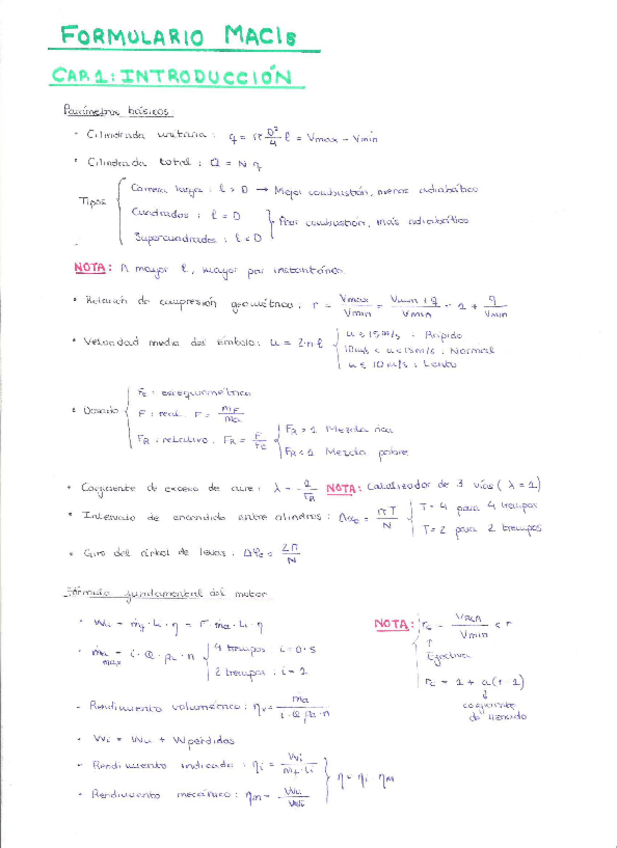 FORMULARIO MACIs
CAP. 1: INTRODUCCIÓN
Parámetros básicos:
• Cilindrada unitaria: q = π D²/4 l = Vmax - Vmin
• Cilindrada total: Q = N q
Tipos { Carrera larga: l > D → Mejor combustión, menos adiabático
Cuadrados: l = D
Supercuadrados: l < D } Peor combustión, más adiabático
NOTA: A mayor l, mayor par instantáneo.
• Relación de compresión geométrica: r = Vmax/Vmin = Vmin + q/Vmin = 1 + q/Vmin
• Velocidad media del émbolo: u = 2·n·l { u ≥ 15 m/s: Rápido
10 m/s < u < 15 m/s: Normal
u ≤ 10 m/s: Lento
• Dosado { Fe: estequiométrico
F: real. F = ṁF/ṁa
FR: relativo. FR = F/Fe { FR > 1 Mezcla rica
FR < 1 Mezcla pobre
• Coeficiente de exceso de aire: λ = 1/FR NOTA: Catalizador de 3 vías (λ = 1)
• Intervalo de encendido entre cilindros: Δαe = πT/N { T = 4 para 4 tiempos
T = 2 para 2 tiempos
• Giro del árbol de levas: = 2π/N
Fórmula fundamental del motor
• Ẇu = ṁf · Li · η = F ṁa · Li · η
• ṁa max = i · Q · ρa · n { 4 tiempos i = 0.5
2 tiempos: i = 1
NOTA: rc = /Vmin < r
↑
Efectiva
rc = 1 + a(r-1)
↓
coeficiente de llenado
- Rendimiento volumétrico: ηv = ṁa/i · Q ρa · n
• Ẇi = Ẇu + Ẇperdidas
- Rendimiento indicado: ηi = Ẇi/ṁf · Li
• Rendimiento mecánico: ηm = Ẇu/Ẇi } η = ηi ηm